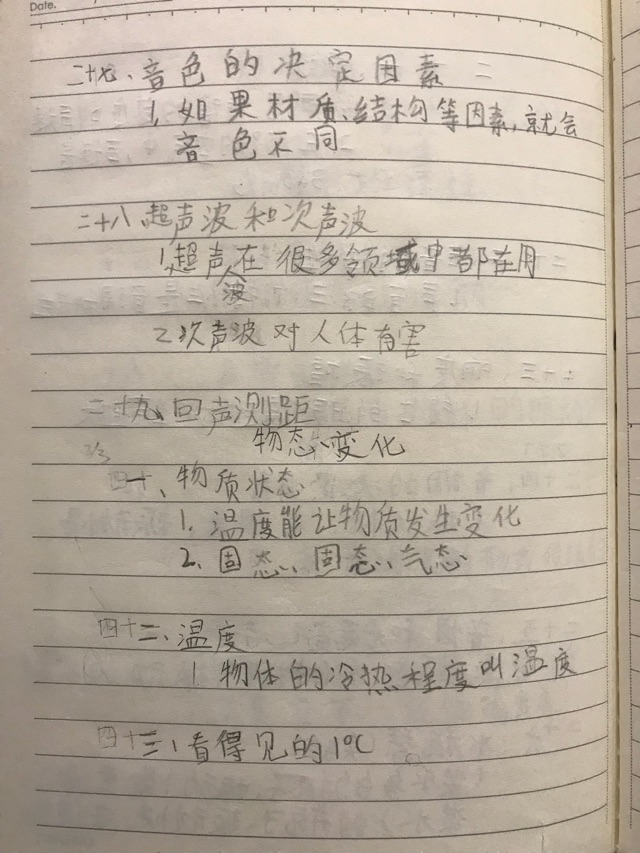 Date.
二十七、音色的决定因素
1、如果材质、结构等因素，就会
音色不同
二十八、超声波和次声波
1、超声在很多领域中都在用
波
2、次声波对人体有害
二十九、回声测距
物态变化
2/3
四十、物质状态
1、温度能让物质发生变化
2、固态、固态、气态
四十二、温度
1 物体的冷热程度叫温度
四十三、看得见的1℃